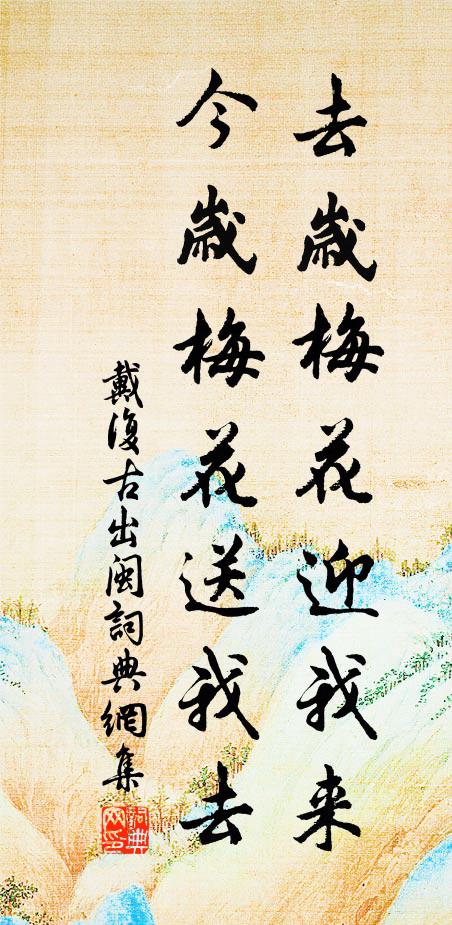 去歲梅花迎我来
今歲梅花送我去
戴復古出閩詞典網集
詞典網印